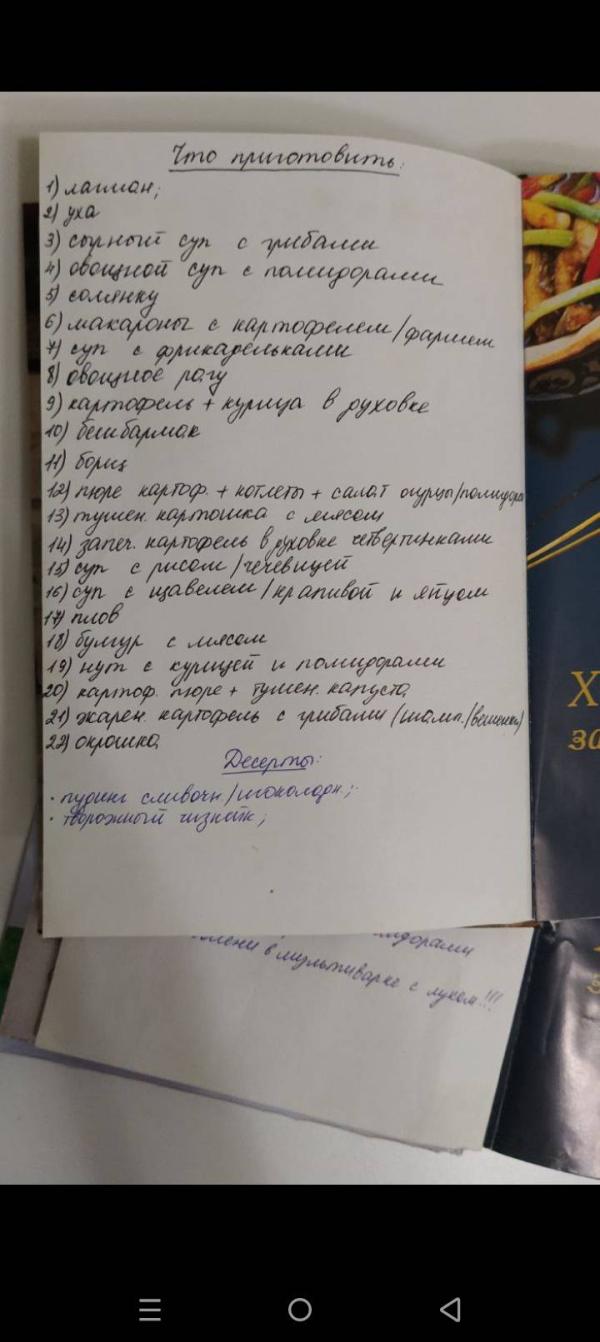 Что приготовить:
1) лагман;
2) уха
3) сырный суп с грибами
4) овощной суп с помидорами
5) солянку
6) макароны с картофелем/фаршем
7) суп с фрикадельками
8) овощное рагу
9) картофель + курица в духовке
10) бешбармак
11) борщ
12) пюре картоф. + котлеты + салат огурцы/помидоры
13) тушен. картошка с мясом
14) запеч. картофель в духовке четвертинками
15) суп с рисом/чечевицей
16) суп с щавелем/крапивой и яйцом
17) плов
18) булгур с мясом
19) нут с курицей и помидорами
20) картоф. пюре + тушен. капуста
21) жарен. картофель с грибами (шамп./вешенки)
22) окрошка
Десерты:
· пудинг сливочн./шоколадн.;
· творожный чизкейк;
в мультиварке с луком!!!
Х
за